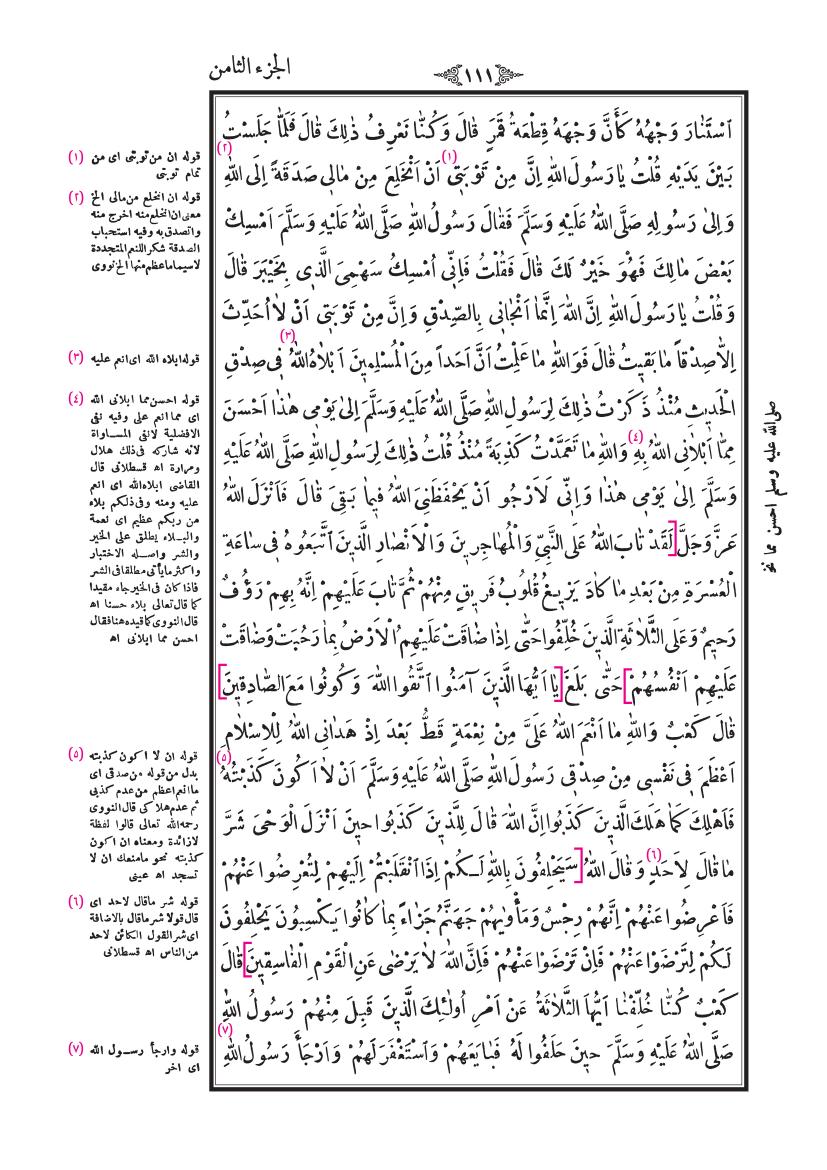 الجزء الثامن
١١١
اَسْتَنَارَ وَجْهُهُ كَأَنَّ وَجْهَهُ قِطْعَةُ قَمَرٍ قَالَ وَكُنَّا نَعْرِفُ ذٰلِكَ قَالَ فَلَمَّا جَلَسْتُ
بَيْنَ يَدَيْهِ قُلْتُ يَا رَسُولَ اللهِ اِنَّ مِنْ تَوْبَتِى (١) اَنْ اَنْخَلِعَ مِنْ مَالِى صَدَقَةً اِلَى اللهِ (٢)
وَاِلَى رَسُولِهِ صَلَّى اللهُ عَلَيْهِ وَسَلَّمَ فَقَالَ رَسُولُ اللهِ صَلَّى اللهُ عَلَيْهِ وَسَلَّمَ اَمْسِكْ
بَعْضَ مَالِكَ فَهُوَ خَيْرٌ لَكَ قَالَ فَقُلْتُ فَاِنِّى اُمْسِكُ سَهْمِىَ الَّذِى بِخَيْبَرَ قَالَ
وَقُلْتُ يَا رَسُولَ اللهِ اِنَّ اللهَ اِنَّمَا اَنْجَانِى بِالصِّدْقِ وَاِنَّ مِنْ تَوْبَتِى اَنْ لاَ اُحَدِّثَ
اِلاَّ صِدْقاً مَا بَقِيتُ قَالَ فَوَ اللهِ مَا عَلِمْتُ اَنَّ اَحَداً مِنَ الْمُسْلِمِينَ اَبْلاَهُ اللهُ (٣) فِى صِدْقِ
الْحَدِيثِ مُنْذُ ذَكَرْتُ ذٰلِكَ لِرَسُولِ اللهِ صَلَّى اللهُ عَلَيْهِ وَسَلَّمَ اِلَى يَوْمِى هٰذَا اَحْسَنَ
مِمَّا اَبْلاَنِى اللهُ بِهِ (٤) وَاللهِ مَا تَعَمَّدْتُ كَذِبَةً مُنْذُ قُلْتُ ذٰلِكَ لِرَسُولِ اللهِ صَلَّى اللهُ عَلَيْهِ
وَسَلَّمَ اِلَى يَوْمِى هٰذَا وَاِنِّى لَاَرْجُو اَنْ يَحْفَظَنِىَ اللهُ فِيمَا بَقِىَ قَالَ فَاَنْزَلَ اللهُ
عَزَّ وَجَلَّ [لَقَدْ تَابَ اللهُ عَلَى النَّبِىِّ وَالْمُهَاجِرِينَ وَالْاَنْصَارِ الَّذِينَ اتَّبَعُوهُ فِى سَاعَةِ
الْعُسْرَةِ مِنْ بَعْدِ مَا كَادَ يَزِيغُ قُلُوبُ فَرِيقٍ مِنْهُمْ ثُمَّ تَابَ عَلَيْهِمْ اِنَّهُ بِهِمْ رَؤُفٌ
رَحِيمٌ وَعَلَى الثَّلاَثَةِ الَّذِينَ خُلِّفُوا حَتَّى اِذَا ضَاقَتْ عَلَيْهِمُ الْاَرْضُ بِمَا رَحُبَتْ وَضَاقَتْ
عَلَيْهِمْ اَنْفُسُهُمْ] حَتَّى بَلَغَ [يَا اَيُّهَا الَّذِينَ آمَنُوا اتَّقُوا اللهَ وَكُونُوا مَعَ الصَّادِقِينَ]
قَالَ كَعْبٌ وَاللهِ مَا اَنْعَمَ اللهُ عَلَىَّ مِنْ نِعْمَةٍ قَطُّ بَعْدَ اِذْ هَدَانِى اللهُ لِلْاِسْلاَمِ
اَعْظَمَ فِى نَفْسِى مِنْ صِدْقِى رَسُولَ اللهِ صَلَّى اللهُ عَلَيْهِ وَسَلَّمَ اَنْ لاَ اَكُونَ كَذَبْتُهُ (٥)
فَاَهْلِكَ كَمَا هَلَكَ الَّذِينَ كَذَبُوا اِنَّ اللهَ قَالَ لِلَّذِينَ كَذَبُوا حِينَ اَنْزَلَ الْوَحْىَ شَرَّ
مَا قَالَ لِاَحَدٍ (٦) وَقَالَ اللهُ [سَيَحْلِفُونَ بِاللهِ لَكُمْ اِذَا انْقَلَبْتُمْ اِلَيْهِمْ لِتُعْرِضُوا عَنْهُمْ
فَاَعْرِضُوا عَنْهُمْ اِنَّهُمْ رِجْسٌ وَمَأْوٰيهُمْ جَهَنَّمُ جَزَاءً بِمَا كَانُوا يَكْسِبُونَ يَحْلِفُونَ
لَكُمْ لِتَرْضَوْا عَنْهُمْ فَاِنْ تَرْضَوْا عَنْهُمْ فَاِنَّ اللهَ لاَ يَرْضَى عَنِ الْقَوْمِ الْفَاسِقِينَ] قَالَ
كَعْبٌ كُنَّا خُلِّفْنَا اَيُّهَا الثَّلاَثَةُ عَنْ اَمْرِ اُولٰئِكَ الَّذِينَ قَبِلَ مِنْهُمْ رَسُولُ اللهِ
صَلَّى اللهُ عَلَيْهِ وَسَلَّمَ حِينَ حَلَفُوا لَهُ فَبَايَعَهُمْ وَاسْتَغْفَرَ لَهُمْ وَاَرْجَأَ رَسُولُ اللهِ (٧)
صلى الله عليه وسلم احسن مما نخ
(١) قوله ان من توبتى اى من
تمام توبتى
(٢) قوله ان انخلع من مالى الخ
معنى ان انخلع منه اخرج منه
واتصدق به وفيه استحباب
الصدقة شكرا للنعم المتجددة
لاسيما ما عظم منها الخ نووى
(٣) قوله ابلاه الله اى انعم عليه
(٤) قوله احسن مما ابلانى الله
اى مما انعم على وفيه نفى
الافضلية لانفى المساواة
لانه شاركه فى ذلك هلال
ومرارة اھ قسطلانى قال
القاضى ابلاه الله اى انعم
عليه ومنه وفى ذلكم بلاء
من ربكم عظيم اى نعمة
والبلاء يطلق على الخير
والشر واصله الاختبار
واكثر ما يأتى مطلقا فى الشر
فاذا كان فى الخير جاء مقيدا
كما قال تعالى بلاء حسنا اھ
قال النووى كما قيده هنا فقال
احسن مما ابلانى اھ
(٥) قوله ان لا اكون كذبته
بدل من قوله من صدقى اى
ما انعم اعظم من عدم كذبى
ثم عدم هلاكى قال النووى
رحمه الله تعالى قالوا لفظة
لا زائدة ومعناه ان اكون
كذبته نحو مامنعك ان لا
تسجد اھ عينى
(٦) قوله شر ماقال لاحد اى
قال قولا شر ماقال بالاضافة
اى شر القول الكائن لاحد
من الناس اھ قسطلانى
(٧) قوله وارجأ رسول الله
اى اخر